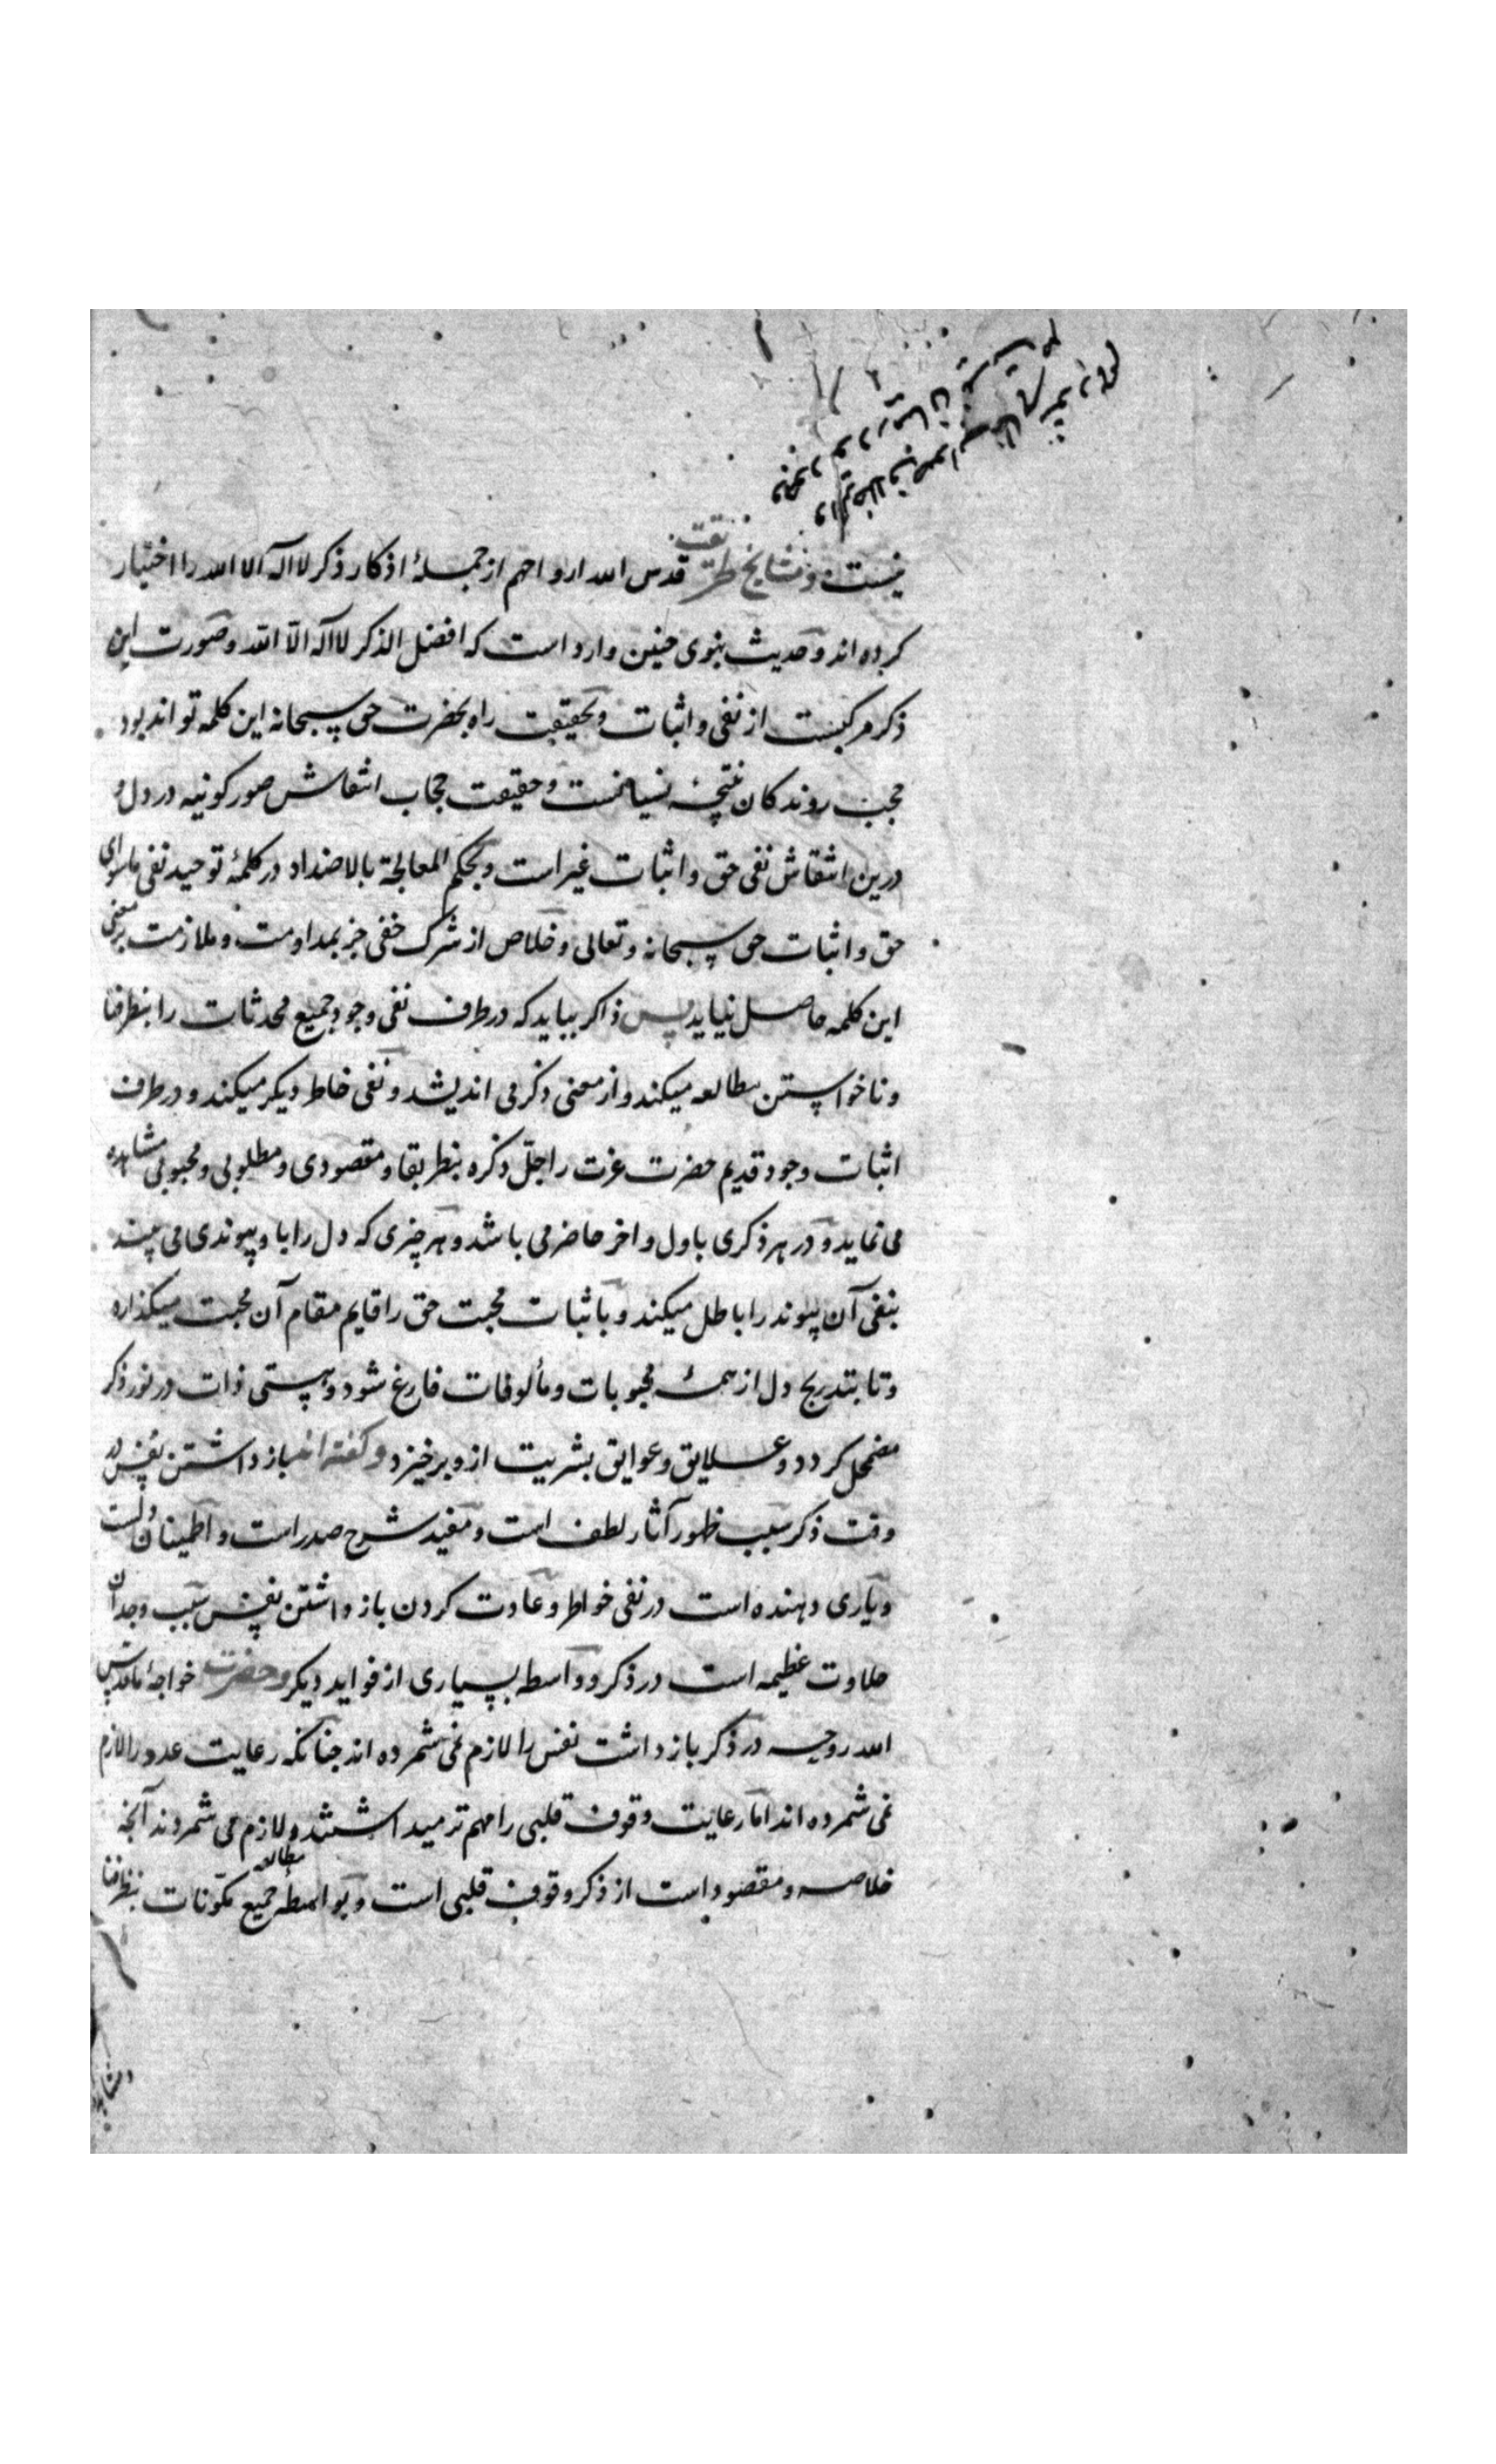 نیست و مشایخ طریقت قدس الله ارواحهم از جملهٔ اذکار ذکر لا اله الا الله را اختیار
کرده اند و حدیث نبوی چنین وارد است که افضل الذکر لا اله الّا الله و صورت این
ذکر مرکبست از نفی و اثبات و بحقیقت راه بحضرت حق سبحانه این کلمه تواند بود
حجب روندکان نتیجهٔ نسیانست و حقیقت حجاب انتقاش صور کونیه در دل و
درین انتقاش نفی حق و اثبات غیر است و بحکم المعالجة بالاضداد در کلمهٔ توحید نفی ماسوای
حق و اثبات حق سبحانه و تعالی و خلاص از شرک خفی جز بمداومت و ملازمت بر معنی
این کلمه حاصل نیاید پس ذاکر بباید که در طرف نفی وجود جمیع محدثات را بنظر فنا
و ناخواستن مطالعه میکند و از معنی ذکر می اندیشد و نفی خاطر دیکر میکند و در طرف
اثبات وجود قدیم حضرت عزت را جلّ ذکره بنظر بقا و مقصودی و مطلوبی و محبوبی مشاهده
می نماید و در هر ذکری باول و اخر حاضر می باشد و هر چیزی که دل را با و پیوندی می بیند
بنفی آن پیوند را باطل میکند و باثبات محبت حق را قایم مقام آن محبت میکذارد
و تا بتدریج دل از همهٔ محبوبات و مألوفات فارغ شود و هستی ذات در نور ذکر
مضمحل کردد و علایق و عوایق بشریت از و برخیزد و کفته اند باز داشتن نفس در
وقت ذکر سبب ظهور آثار لطف است و مفید شرح صدر است و اطمینان دلست
و یاری دهنده است در نفی خواطر و عادت کردن باز داشتن نفس سبب وجدان
حلاوت عظیمه است در ذکر و واسطه بسیاری از فواید دیکر و حضرت خواجهٔ ما قدس
الله روحه در ذکر باز داشت نفس را لازم نمی شمرده اند چنانکه رعایت عدد را لازم
نمی شمرده اند اما رعایت وقوف قلبی را مهم تر میداشتند و لازم می شمردند آنچه
خلاصه و مقصود است از ذکر وقوف قلبی است و بواسطهٔ مطالعه جمیع مکونات بنظر فنا
و مشاهده